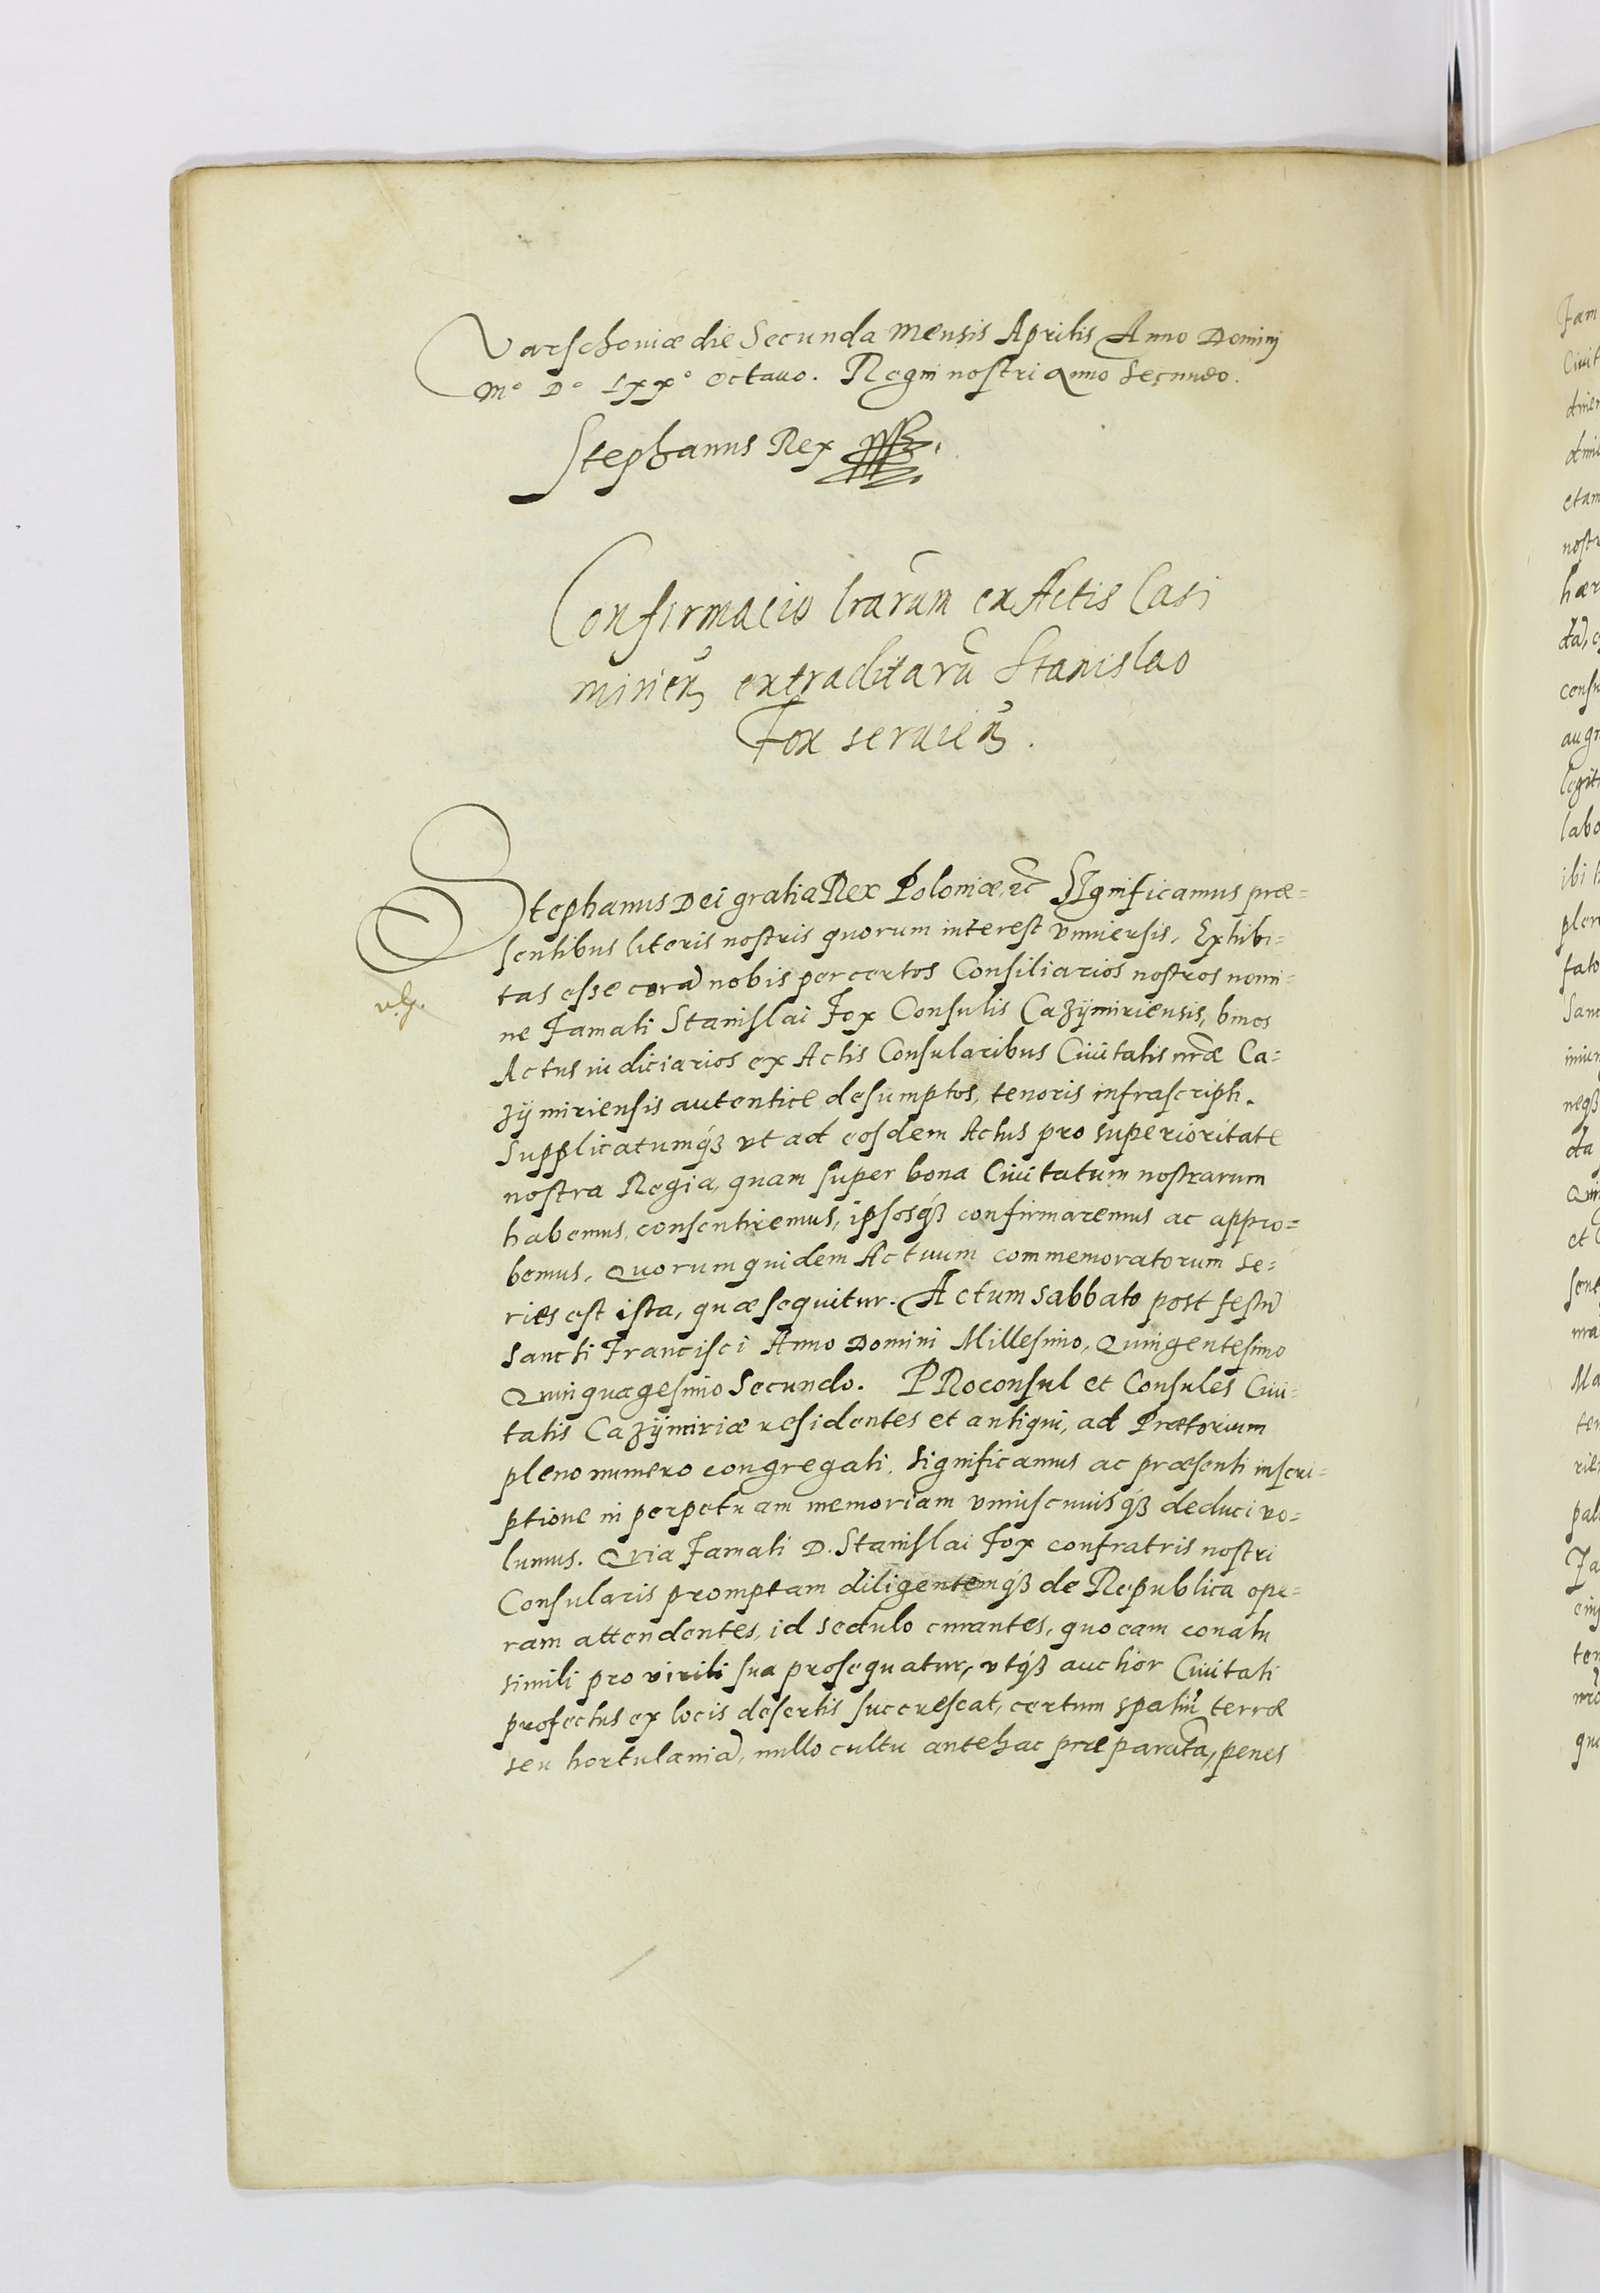 Varschoviæ die Secunda Mensis Aprilis Anno Dominj
Mº Dº LXXº octauo. Regni nostri anno Secundo.
Stephanus Rex
Confirmacio lrarum ex Actis Casi
mirien extraditarū Stanislao
Fox seruien.
Stephanus Dei gratia Rex Poloniæ, etc SIgnificamus præ=
sentibus literis nostris quorum interest vniuersis, Exhibi=
tas esse corā nobis per certos Consiliarios nostros nomi=
ne Famati Stanislai Fox Consulis Cazÿmiriensis, binos
Actus iudiciarios ex Actis Consularibus Ciuitatis nrāe Ca=
zÿmiriensis autentice desumptos, tenoris infrascripti.
Supplicatumq3 vt ad eosdem Actus pro superioritate
nostra Regia, quam super bona Ciuitatum nostrarum
habemus, consentiremus, ipsosq3 confirmaremus ac appro=
bemus, Quorum quidem Actuum commemoratorum se=
ries est ista, quæ sequitur. Actum sabbato post festū
Sancti Francisci Anno Domini Millesimo, Quingentesimo
Quinquagesimo Secundo. PRoconsul et Consules Ciui=
tatis Cazÿmiriæ residentes et antiqui, ad Prætorium
pleno numero congregati, significamus ac præsenti inscri=
ptione in perpetuam memoriam vniuscuiusq3 deduci vo=
lumus. Quia Famati D. Stanislai Fox confratris nostri
Consularis promptam diligentemq3 de Republica ope=
ram attendentes, id sedulo curantes, quo eam conatu
simili pro virili sua prosequatur, vtq3 auctior Ciuitati
profectus ex locis desertis succrescat, certum spatiū terræ
seu hortulaniā, nullo cultu antehac præparatā, penes